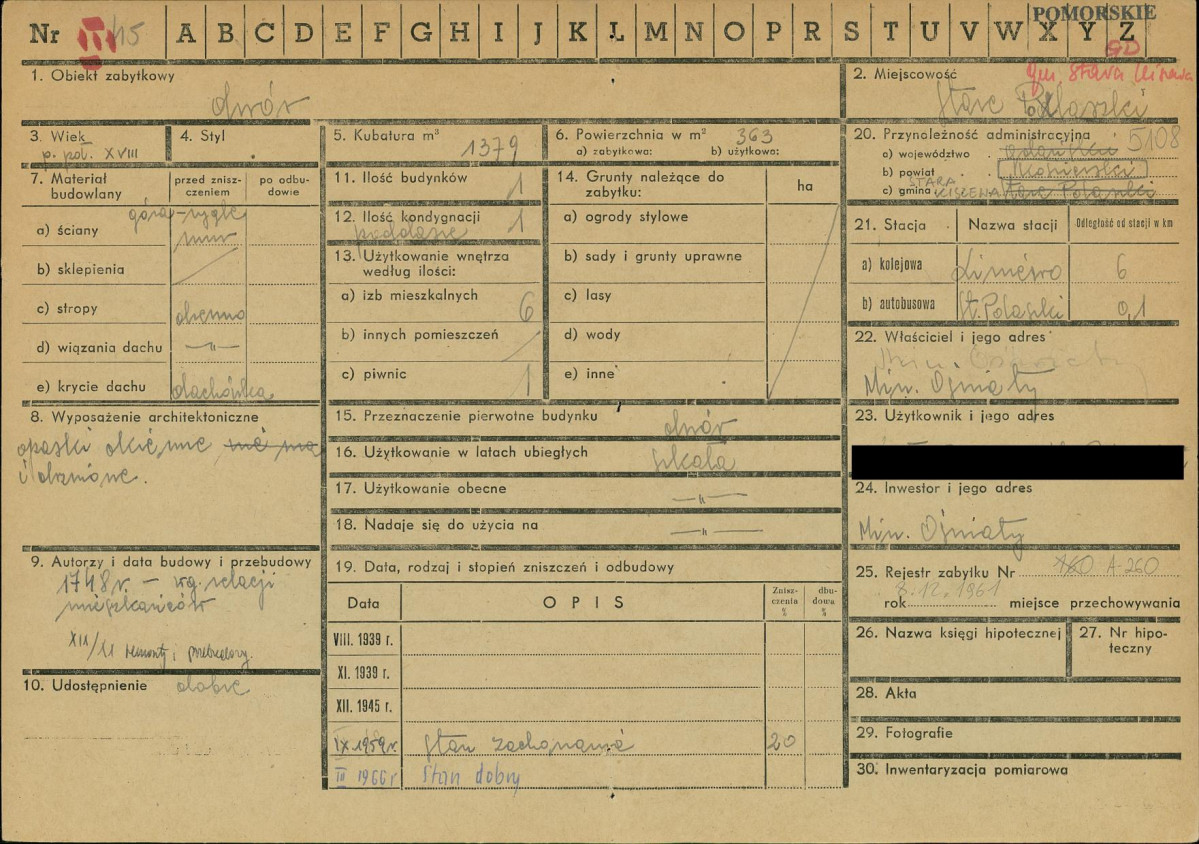 POMORSKIE
Nr III/15 A B C D E F G H I J K L M N O P R S T U V W X Y Z
GD
gm. Stara Kiszewa
1. Obiekt zabytkowy
dwór
2. Miejscowość
Stare Polaszki
3. Wiek
p. poł. XVIII
4. Styl
5. Kubatura m³
1379
6. Powierzchnia w m² 363
a) zabytkowa: b) użytkowa:
7. Materiał budowlany
przed zniszczeniem
po odbudowie
góra-rygle
a) ściany mur
b) sklepienia
c) stropy drewno
d) wiązania dachu —"—
e) krycie dachu dachówka
8. Wyposażenie architektoniczne
opaski okienne
i drzwiowe.
9. Autorzy i data budowy i przebudowy
1748 r. – wg. relacji
mieszkańców
XIX/XX remonty i przebudowy.
10. Udostępnienie dobre
11. Ilość budynków 1
12. Ilość kondygnacji 1
poddasze
13. Użytkowanie wnętrza
według ilości:
a) izb mieszkalnych 6
b) innych pomieszczeń
c) piwnic 1
14. Grunty należące do
zabytku:
ha
a) ogrody stylowe
b) sady i grunty uprawne
c) lasy
d) wody
e) inne
15. Przeznaczenie pierwotne budynku dwór
16. Użytkowanie w latach ubiegłych szkoła
17. Użytkowanie obecne —"—
18. Nadaje się do użycia na —"—
19. Data, rodzaj i stopień zniszczeń i odbudowy
Data OPIS Zniszczenia % dbudowa %
VIII. 1939 r.
XI. 1939 r.
XII. 1945 r.
IX. 1959 r. Stan zachowania 20
III 1966 r Stan dobry
20. Przynależność administracyjna 5108
a) województwo gdańskie
b) powiat
c) gmina STARA KISZEWA Stare Polaszki
21. Stacja Nazwa stacji Odległość od stacji w km
a) kolejowa Liniewo 6
b) autobusowa St. Polaszki 0,1
22. Właściciel i jego adres
Min. Oświaty
23. Użytkownik i jego adres
24. Inwestor i jego adres
Min. Oświaty
25. Rejestr zabytku Nr A-260
8.12.1961
rok miejsce przechowywania
26. Nazwa księgi hipotecznej
27. Nr hipoteczny
28. Akta
29. Fotografie
30. Inwentaryzacja pomiarowa